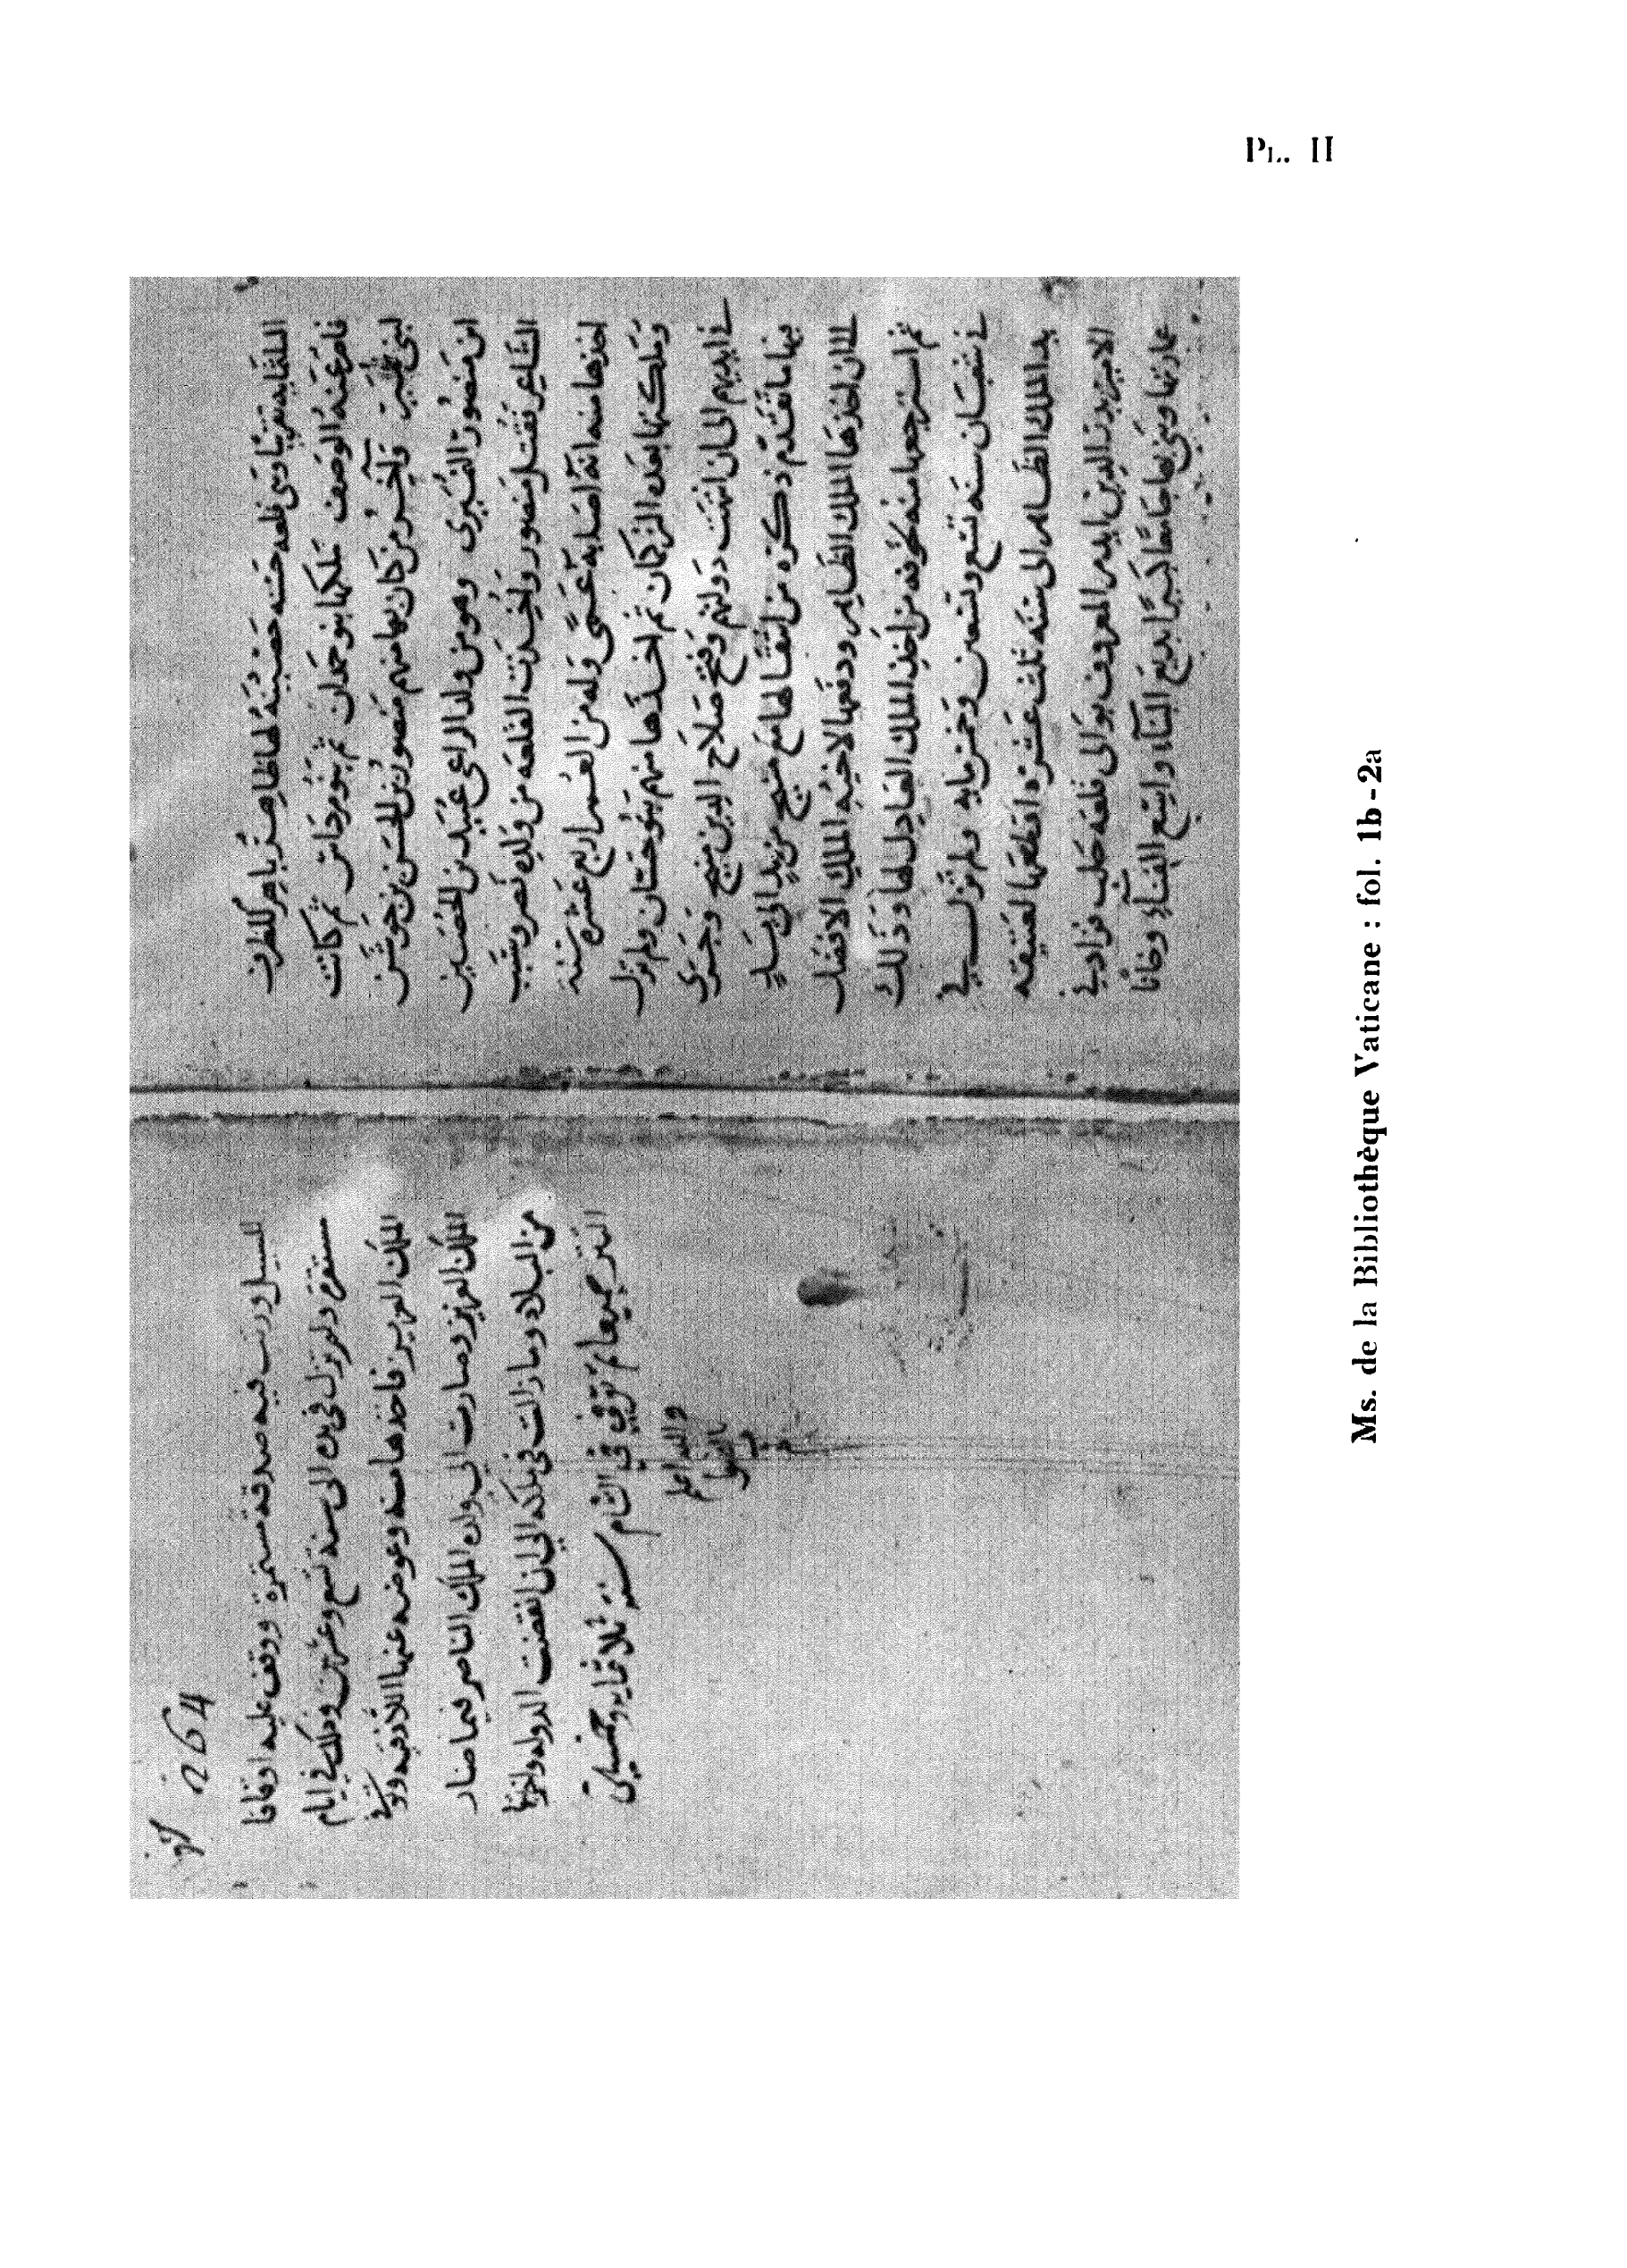 PL. II
وهي قلعه حسنه حصينه لها ظاهر
ملكها بنو حمدان ثم بنو مرداس ثم كانت
لبني نمير وآخر من كان بها منهم منصور بن الحسن بن جوشن
ابن منصور النميري وهو من ولد الراعي عبيد بن الحصين
الشاعر فقتل منصور واخذت القلعه من ولده نصر وسبب
اخذها منه انه اصابه عمى وله من العمر اربع عشره سنة
وتملكها بعده التركمان ثم اخذها منهم بنو حسان ولم تزل
في ايديهم الى ان انقضت دولتهم وفتح صلاح الدين منبج وجرى
فيها ما تقدم ذكره من انتقالها مع منبج من يد الى يد
الى ان اخذها الملك الظاهر ودفعها لاخيه الملك الافضل
ثم استرجعها منه من اخذ الملك العادل لها وذلك
في شعبان سنه تسع وتسعين وخمس مايه ولم تزل في
يد الملك الظاهر الى سنه ثلث عشره اقطعها لعتيقه
الامير بدر الدين ايدمر المعروف بوالي قلعه حلب فزاد في
عمارتها وبنى بها جامعا كبيرا بديع البناء واسع الفناء وخانا
264
للسبيل ورتب فيه صدقه مستمرة ووقف عليه اوقافا
ولم تزل في يده الى سنه تسع وعشرين وذلك في ايام
الملك العزيز فاخذها منه وعوضه عنها اللاذقيه
الملك العزيز وصارت الى ولده الملك الناصر فيما صار
من البلاد وما زالت في ملكه الى ان انقضت الدوله واخذها
التتر جميعا توفي في الشام سنة ثلاثمايه وخمسين
والله اعلم
Ms. de la Bibliothèque Vaticane : fol. 1b-2a